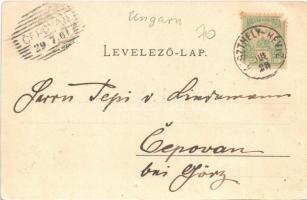 Ungarn
70
ČEPOVAN
29 7 07
LEVELEZŐ-LAP.
KESZTHELY-HÉVIZ
Herrn Pepi v. Lindemann
Čepovan
bei Görz